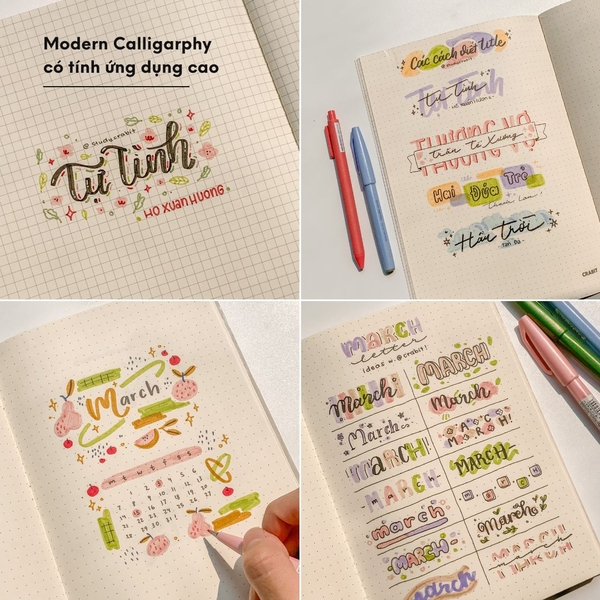 Modern Calligarphy
có tính ứng dụng cao
@studycrabit
Tự Tình
HỒ XUÂN HƯƠNG
Các cách viết title
@studycrabit
Tự Tình
Tự Tình
HỒ XUÂN HƯƠNG
THƯƠNG VỢ
Trần Tế Xương
Hai Đứa Trẻ
Thạch Lam
Hầu Trời
Tản Đà
CRABIT
March
m t w t f s s
1 2 3 4 5 6
7 8 9 10 11 12 13
14 15 16 17 18 19 20
21 22 23 24 25 26 27
28 29 30 31
MARCH
letter
ideas w. @crabit!
March
MARCH
March
March
March
MARCH
march
MARCH
MARCH
MARCH
march
March
MARCH
MARCH
march
march